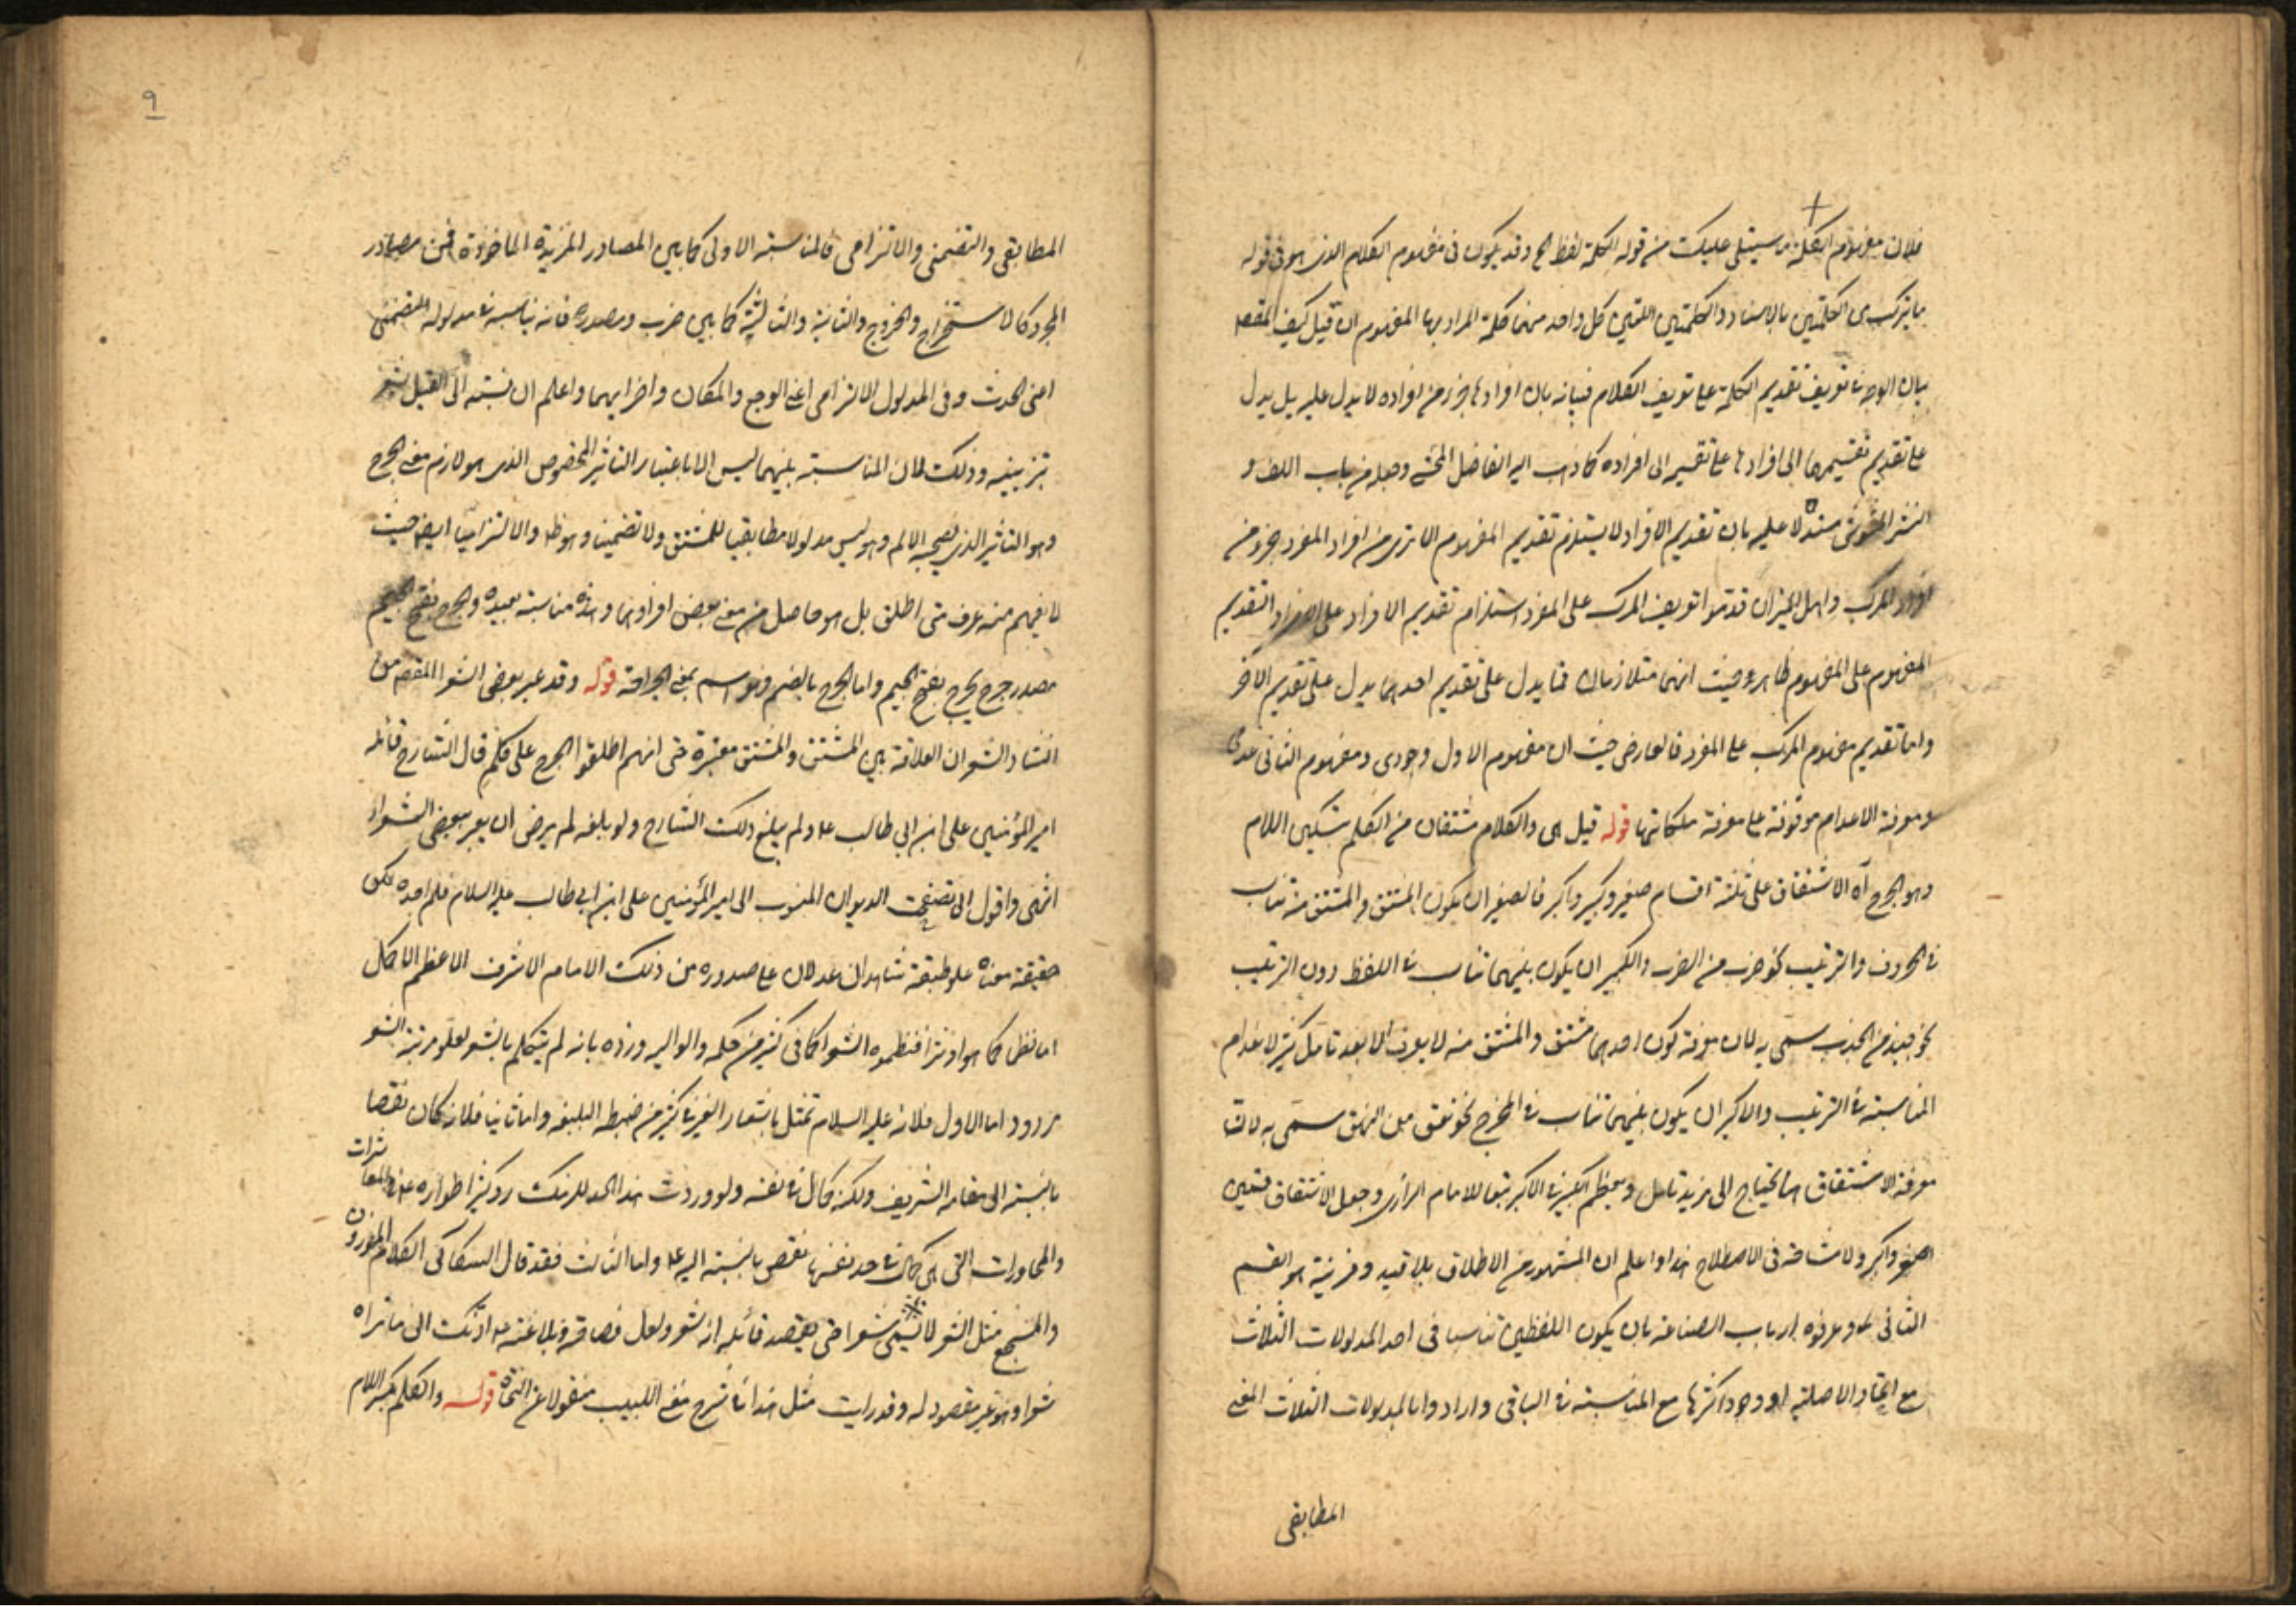 فلان مفهوم الكلمة ما سيتلى عليك من قوله الكلمة لفظ الخ وقد يكون في مفهوم الكلام الذي هو في قوله
ما يتركب من الكلمتين بالاسناد والكلمتين اللتين كل واحد منهما كلمة المراد بها المفهوم ان قيل كيف المقصد
بيان الوجه في تعريف تقديم الكلمة على تعريف الكلام فبيانه بان افرادها جزء من افراده لا يدل عليه بل يدل
على تقديم تقسيمها الى افرادها على تقسيمه الى افراده كما ذهب اليه الفاضل المحشي وجعله من باب اللف و
النشر المشوش مستدلا عليه بان تقديم الافراد لا يستلزم تقديم المفهوم الا ترى من افراد المفرد جزء من
افراد المركب واهل الميزان قدموا تعريف المركب على المفرد استلزام تقديم الافراد على الافراد التقديم
المفهوم على المفهوم ظاهر وحيث انهما متلازمان فما يدل على تقديم احدهما يدل على تقديم الاخر
واما تقديم مفهوم المركب على المفرد فالعارض حيث ان مفهوم الاول وجودي ومفهوم الثاني عدمي
ومعرفة الاعدام موقوفة على معرفة ملكاتها قوله قيل هي والكلام مشتقان من الكلم بتسكين اللام
وهو الجرح آه الاشتقاق على ثلثة اقسام صغير وكبير واكبر فالصغير ان يكون المشتق والمشتق منه تناسب
في الحروف والترتيب نحو ضرب من الضرب والكبير ان يكون بينهما تناسب في اللفظ دون الترتيب
نحو جبذ من الجذب سمي به لان معرفة كون احدهما مشتق والمشتق منه لا يعرف الا بعد تأمل كثير لانعدام
المناسبة في الترتيب والاكبر ان يكون بينهما تناسب في المخرج نحو نعق من النهق سمي به لان
معرفة الاشتقاق انما يحتاج الى مزيد تامل وبعظم الكبير في الاكبر تبعا للامام الرازي وجعل الاشتقاق قسمين
اصغر واكبر ولا مشاحة في الاصطلاح هذا واعلم ان المشهور من الاطلاق بلا قيد وقرينة هو القسم
الثاني كما وعرفوه ارباب الصناعة بان يكون اللفظين تناسبا في احد المدلولات الثلاث
مع اتحاد الاصلية او وجود اكثرها مع المناسبة في الباقي وارادوا بالمدلولات الثلاث المعنى
المطابقي
٩
المطابقي والتضمني والالتزامي فالمناسبة الاولى كما بين المصادر المزيدة الماخوذة من مصادر
المجرد كالاستخراج والخروج والثانية والثالثة كما بين ضرب ومصدره فانه يناسبه في مدلوله التضمني
اعني الحدث وفي المدلول الالتزامي اعني الوجع والمكان واضرابهما واعلم ان نسبته الى القيل يشعر
بتزييفه وذلك لان المناسبة بينهما ليس الا باعتبار التاثير المخصوص الذي هو لازم معنى الجرح
وهو التاثير الذي يصحبه الالم وهو ليس مدلولا مطابقيا للمشتق ولا تضمينا وهو ظ ولا التزاميا ايضا حيث
لا يفهم منه عرف متى اطلق بل هو حاصل من معنى بعض افرادها وهذه مناسبة بعيدة والجرح بفتح الجيم
مصدر جرح يجرح بفتح الجيم واما الجرح بالضم فهو اسم بمعنى الجراحة قوله وقد عبر بعض الشعراء المقصد من
انشاد الشعر ان العلاقة بين المشتق والمشتق معتبرة حتى انهم اطلقوا الجرح على كلم قال الشارح قائله
امير المؤمنين علي ابن ابي طالب ع ولم يبلغ ذلك الشارح ولو بلغه لم يرض ان يعبر ببعض الشعراء
انتهى واقول اني تصفحت الديوان المنسوب الى امير المؤمنين علي ابن ابي طالب عليه السلام فلم اجده لكن
حقيقة معناه علو طبقته شاهدان عدلان على صدوره من ذلك الامام الاشرف الاعظم الاكمل
اما نظما كما هو او نثرا فنظموه الشعراء كما في كثير من حكمه والوا اليه ورده بانه لم يتكلم بالشعر لعلو مرتبته الشعر
مردود اما الاول فلانه عليه السلام تمثل باشعار الغير في كثير من خطبه البليغة واما ثانيا فلانه كان نقصا
بالنسبة الى مقامه الشريف ولكنه كمال في نفسه ولو وردت هذا الحد للزمك رد كثير اطواره عن المعاشرات
والمحاورات التي هي كمال في حد نفسها نقص بالنسبة اليه ع واما الثالث فقد قال السكاكي الكلام الموزون
والمسجع مثل الشعر لا يسمى شعرا حتى يقصد قائله انه شعر ولعل فصاحته وبلاغته ع ادتك الى ما تراه
شعرا وهو غير مقصود له وقد رايت مثل هذا في شرح مغني اللبيب منقولا عن النحاة قوله والكلم بكسر اللام